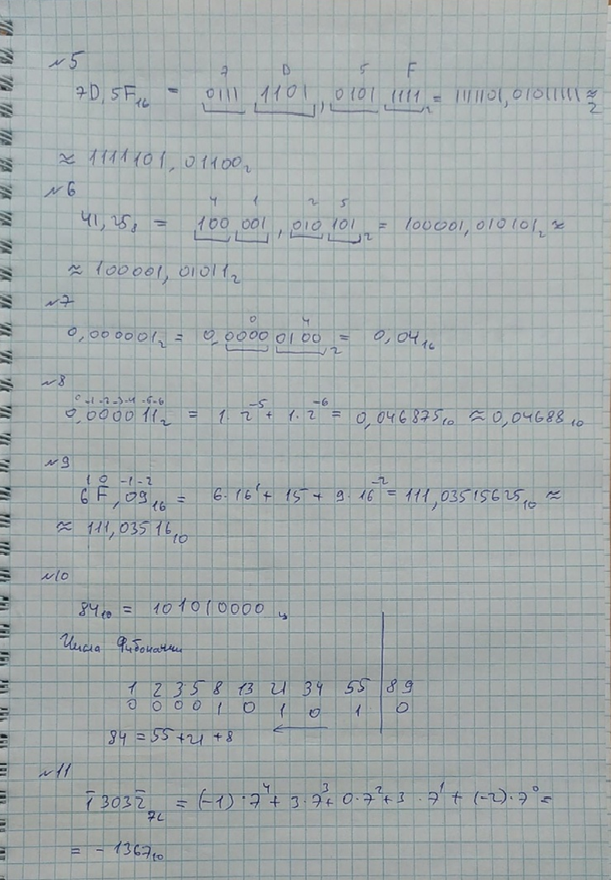 №5
7 D 5 F
7D,5F₁₆ = 0111 1101, 0101 1111₂ = 111101,01011111₂ ≈
≈ 1111101,01100₂
№6
4 1 2 5
41,25₈ = 100 001, 010 101₂ = 100001,010101₂ ≈
≈ 100001,01011₂
№7
0 4
0,000001₂ = 0,0000 0100₂ = 0,04₁₆
№8
0 -1 -2 -3 -4 -5 -6
0,000011₂ = 1·2⁻⁵ + 1·2⁻⁶ = 0,046875₁₀ ≈ 0,04688₁₀
№9
1 0 -1 -2
6F,09₁₆ = 6·16¹ + 15 + 9·16⁻² = 111,03515625₁₀ ≈
≈ 111,03516₁₀
№10
84₁₀ = 101010000ц
Числа Фибоначчи
1 2 3 5 8 13 21 34 55 89
0 0 0 0 1 0 1 0 1 0
84 = 55 + 21 + 8
№11
1̅3032̅₇c = (-1)·7⁴ + 3·7³ + 0·7² + 3·7¹ + (-2)·7⁰ =
= -1367₁₀